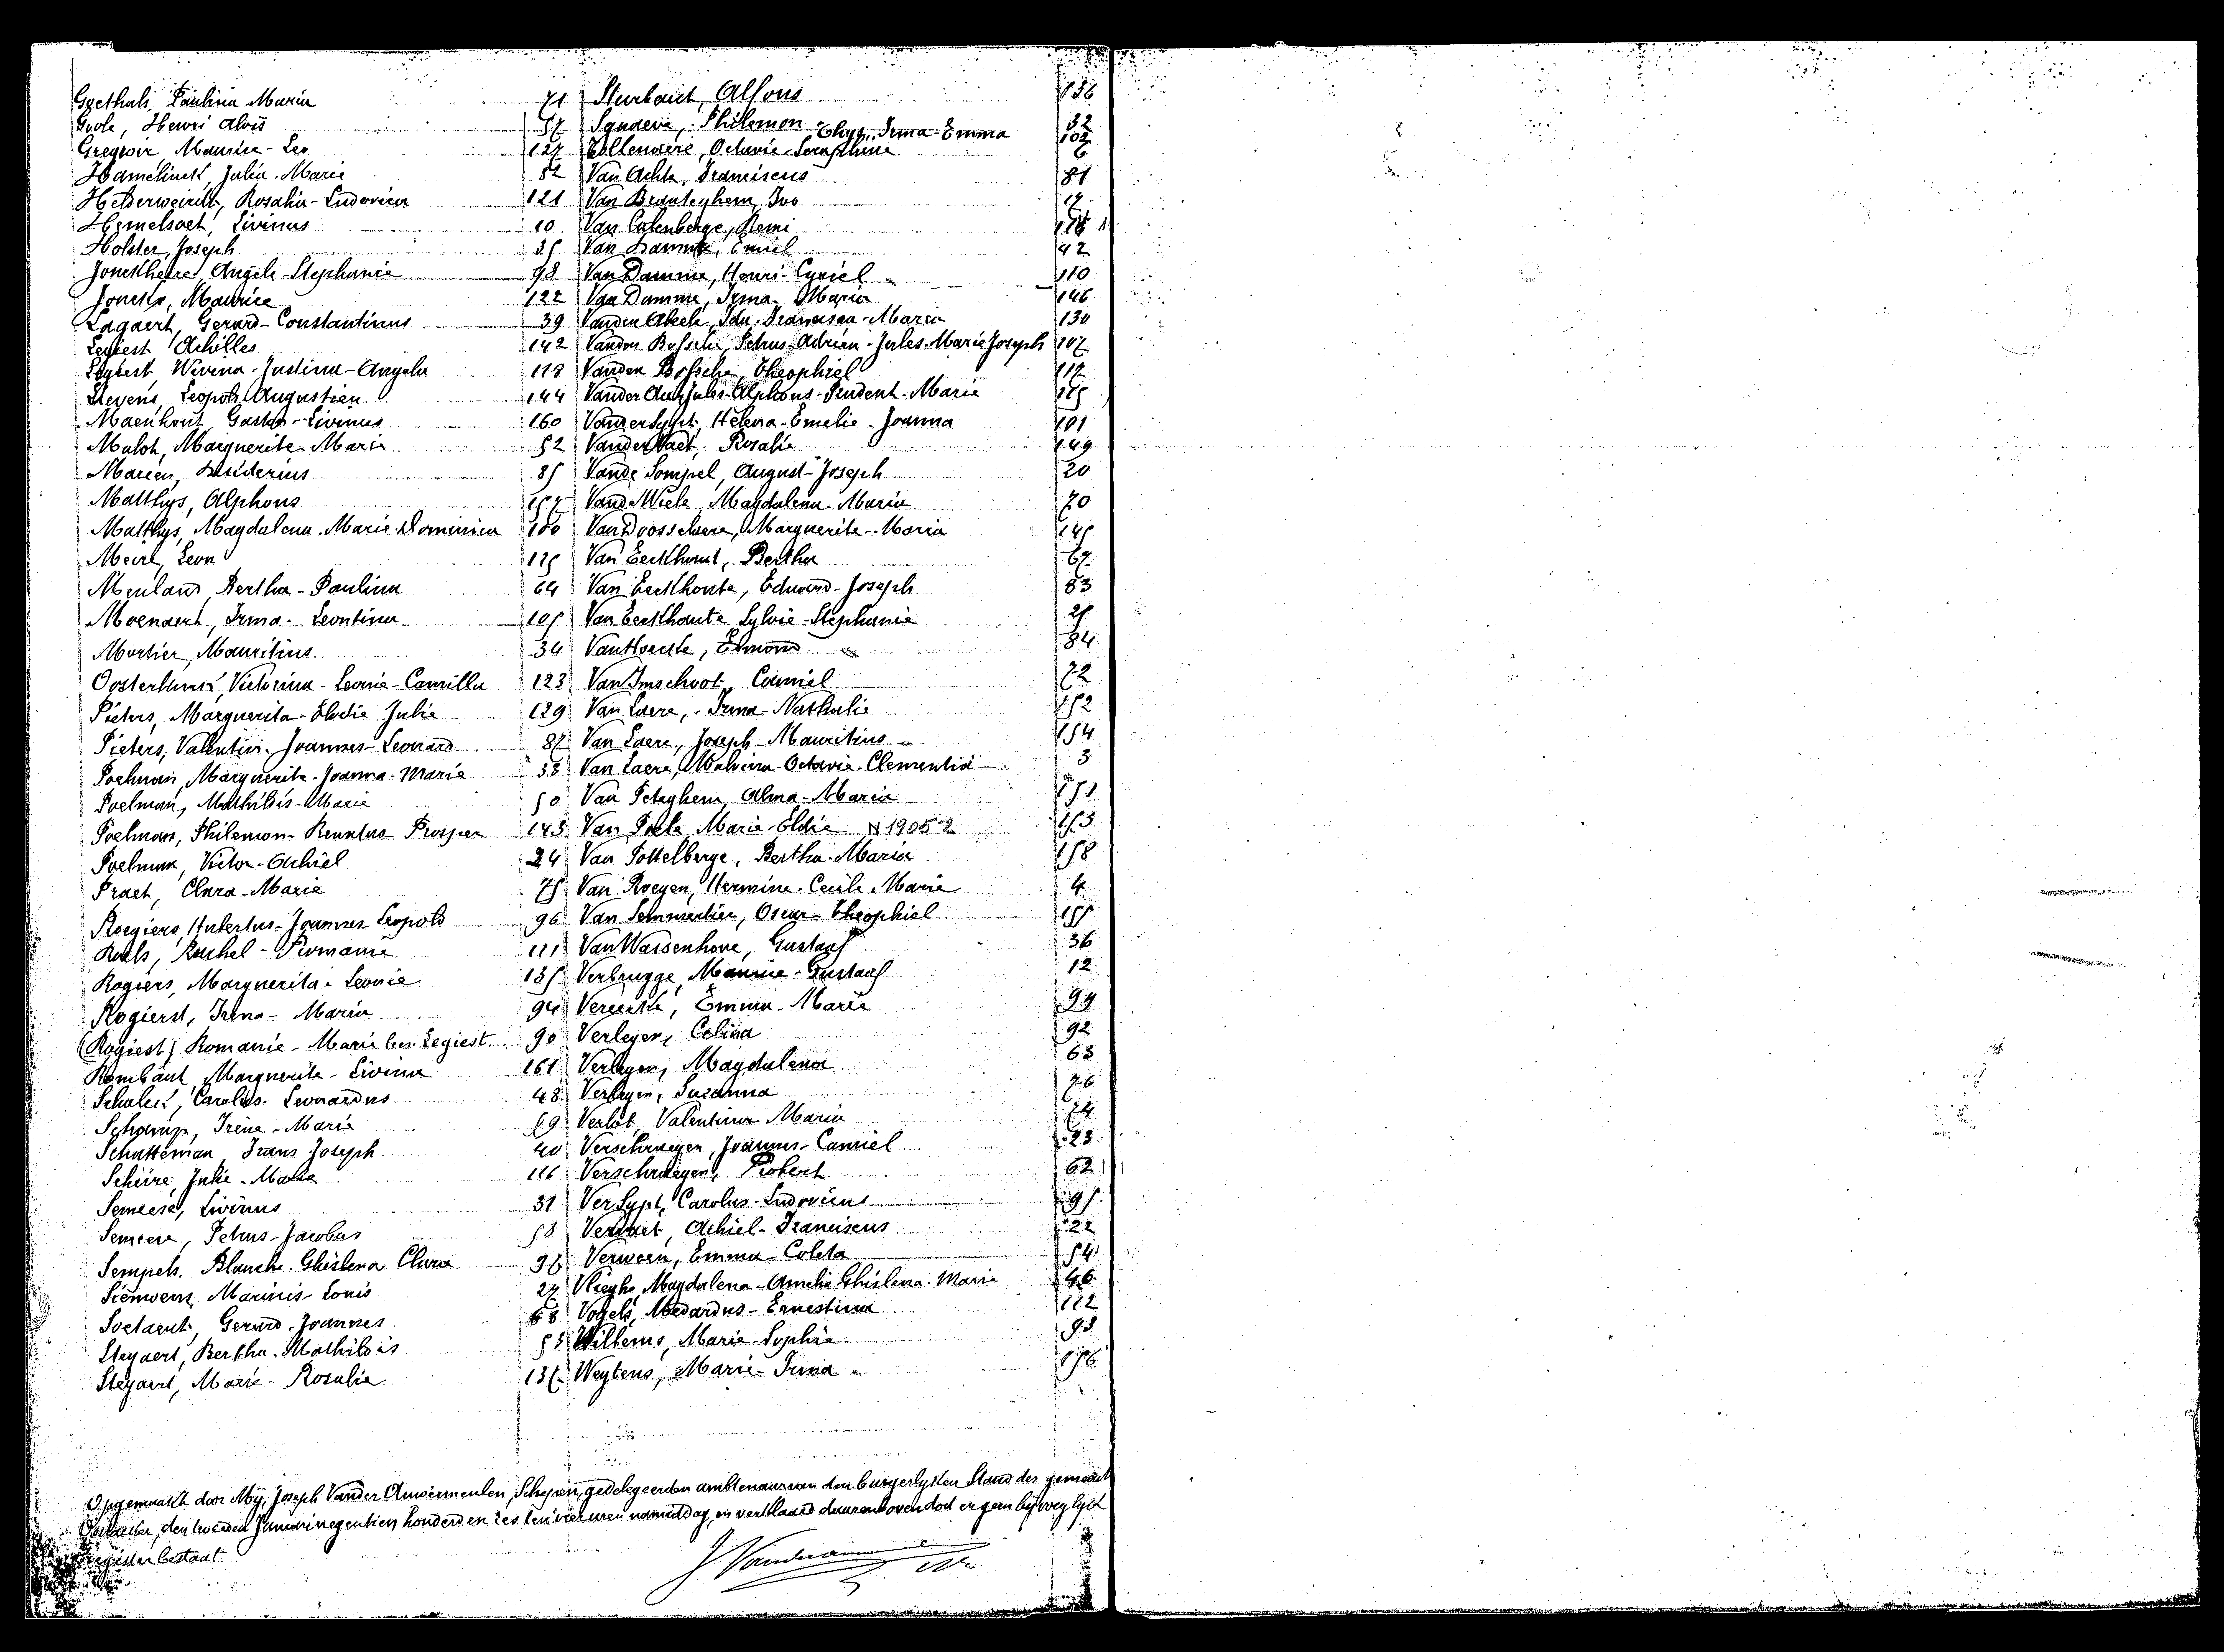 Goethals, Paulina Maria 71
Grole, Henri Aloïs 57
Gregroir, Maurice-Leo 127
Hamelinck, Julia-Marie 82
Helderweirdt, Rosalia-Ludovica 121
Hemelsoet, Livinus 10
Holster, Joseph 35
Jonckheere, Angèle-Stephanie 98
Jonckx, Maurice 122
Lagaert, Gerard-Constantinus 39
Legiest, Achilles 142
Legiest, Wivina-Justina-Angela 118
Lievens, Leopold Augustien 144
Maenhout, Gaston-Livinus 160
Maloh, Marguerite-Marie 52
Mareen, Desiderius 85
Matthys, Alphons 157
Matthys, Magdalena-Marie-Dominica 100
Meire, Leon 125
Meuland, Bertha-Paulina 64
Moenaert, Irma-Leontina 105
Mortier, Mauritius 34
Oosterlinck, Victorina-Leonie-Camilla 123
Pieters, Marguerita-Elodie Julie 129
Pieters, Valentin-Joannes-Leonard 87
Poelman, Marguerite-Joanna-Marie 33
Poelman, Mathildis-Marie 50
Poelman, Philemon-Renatus Prosper 143
Poelman, Victor-Achiel 24
Praet, Clara-Marie 75
Roegiers, Hubertus-Joannes-Leopold 96
Roels, Rachel-Romanie 111
Rogiers, Marguerita-Leonie 135
Rogierst, Irena-Maria 94
(Rogiest) Romanie-Marie Legiest 90
Rombaut, Marguerite-Livina 161
Schalck, Carolus-Leonardus 48
Schamp, Irène-Marie 69
Schatteman, Frans Joseph 40
Scheire, Julie-Maria 116
Semeese, Livinus 31
Semeese, Petrus-Jacobus 58
Sempels, Blanche-Ghislena Clara 97
Siemoens, Marinis-Louis 27
Soetaert, Gerard-Joannes 68
Steyaert, Bertha-Mathildis 53
Steyaert, Marie-Rosalie 137
Sturbaut, Alfons 136
Synaeve, Philemon 32
Thys, Irma-Emma 102
Tollenaere, Octavie-Seraphine 6
Van Achte, Franciscus 81
Van Branteghem, Ivo 17
Van Calenberge, Remi
Van Damme, Emiel 42
Van Damme, Henri-Cyriel 110
Van Damme, Irma-Maria 146
Vanden Abeele, Ida-Francisca-Maria 130
Vanden Bossche, Petrus-Adrien-Jules-Marie Joseph 107
Vanden Bossche, Theophiel 117
Vander Auw, Jules-Alphons-Prudent-Marie
VanderSypt, Helena-Emelie-Joanna 101
Vander Vaet, Rosalie 149
Vande Sompel, August-Joseph 20
Vande Wiele, Magdalena-Maria 70
Van Dooselaere, Marguerite-Maria 145
Van Eeckhout, Bertha 67
Van Eeckhoute, Eduard-Joseph 83
Van Eeckhaute, Sylvie-Stephanie 25
Van Hoecke, Edmond 84
Van Imschoot, Camiel 72
Van Laere, Irma-Nathalie 152
Van Laere, Joseph-Mauritius 154
Van Laere, Malvina-Octavie-Clementia 3
Van Peteghem, Alma-Maria 151
Van Poele, Marie-Elodie N 1905-2 153
Van Pottelberge, Bertha-Maria 158
Van Royen, Hermine-Cecile-Marie 4
Van Semmertier, Oscar-Theophiel 155
Van Wassenhove, Gustaaf 36
Verbrugge, Maurice-Gustaaf 12
Vereecke, Emma-Marie 99
Verleyen, Celina 92
Verleyen, Magdalena 63
Verleyen, Susanna 76
Verlot, Valentina-Maria 74
Verschraegen, Joannes-Camiel 23
Verschraegen, Robert 62
VerSypt, Carolus-Ludovicus 95
Vervaet, Achiel-Franciscus 22
Verween, Emma-Coleta 54
Vlieghe, Magdalena-Amelie Ghislena-Marie 46
Vogels, Medardus-Ernestina 112
Willems, Marie-Sophie 93
Weytens, Marie-Irma 156
Opgemaakt door Mij, Joseph Vander Auwermeulen, Schepen, gedelegeerden ambtenaar van den burgerlyken Stand der gemeente
den tweeden Januari negentien honderd en zes ten vier uren namiddag, en verklaard daarenboven dat er geen bijvoeglyk
register bestaat